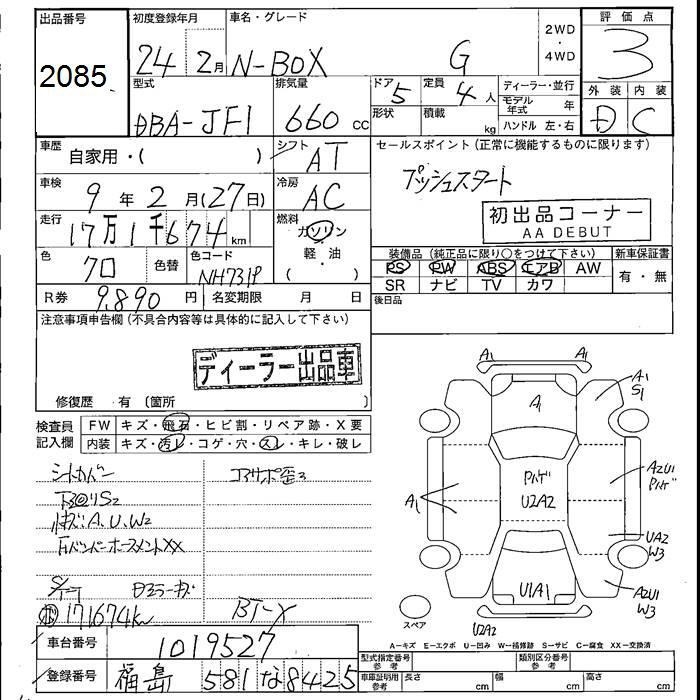 出品番号 初度登録年月 車名・グレード 2WD・4WD 評価点
2085
24 2月 N-BOX G 3
型式 排気量 ドア 5 定員 4人 ディーラー・並行
外装 内装
形状 積載 kg モデル年式 年
DBA-JF1 660cc ハンドル 左・右 D C
車歴 自家用・( ) シフト AT セールスポイント(正常に機能するものに限ります)
プッシュスタート
車検 9年2月(27日) 冷房 AC
初出品コーナー
AA DEBUT
走行 17万1千674km 燃料 ガソリン・軽油( )
装備品(純正品に限り○をつけて下さい) 新車保証書
色 70 色替 色コード NH731P
PS PW ABS エアB AW 有・無
SR ナビ TV カワ
R券 9,890円 名変期限 月 日 後日品
注意事項申告欄(不具合内容等は具体的に記入して下さい)
ディーラー出品車
修復歴 有 〔箇所 〕
検査員記入欄 FW キズ・飛石・ヒビ割・リペア跡・X要
内装 キズ・汚レ・コゲ・穴・スレ・キレ・破レ
シートカバー コアサポ歪
A1 A1
A1 S1
A1
A2U1
Pパゲ
Pハゲ
U2A2
A1
UA2
W3
U1A1
A2U1
W3
U2A2
171674km
スペア
A=キズ E=エクボ U=凹み W=補修跡 S=サビ C=腐食 XX=交換済
車台番号 1019527
型式指定番号 参考 類別区分番号 参考
登録番号 福島 581 な 8425
車庫証明用 参考 長さ cm 幅 cm 高さ cm